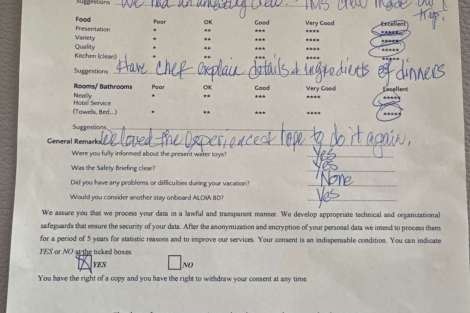 Suggestions We had an amazing crew. This crew made our trip!
Food Poor OK Good Very Good Excellent
Presentation * ** *** **** *****
Variety * ** *** **** *****
Quality * ** *** **** *****
Kitchen (clean) * ** *** **** *****
Suggestions Have chef explain details & ingredients of dinners
Rooms/ Bathrooms Poor OK Good Very Good Excellent
Neatly * ** *** **** *****
Hotel Service
(Towels, Bed...) * ** *** **** *****
Suggestions
General Remarks We loved the experience & hope to do it again.
Were you fully informed about the present water toys? Yes
Was the Safety Briefing clear? Yes
Did you have any problems or difficulties during your vacation? None
Would you consider another stay onboard ALOIA 80? Yes
We assure you that we process your data in a lawful and transparent manner. We develop appropriate technical and organizational
safeguards that ensure the security of your data. After the anonymization and encryption of your personal data we intend to process them
for a period of 5 years for statistic reasons and to improve our services. Your consent is an indispensable condition. You can indicate
YES or NO at the ticked boxes
YES NO
You have the right of a copy and you have the right to withdraw your consent at any time